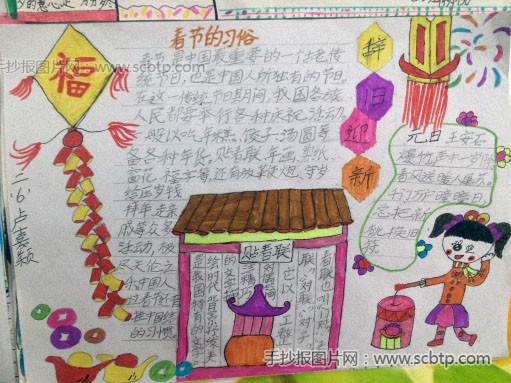 手抄报图片网www.scbtp.com
春节的习俗
春节是中国最重要的一个古老传
统节日,也是中国人所独有的节日。
在这一传统节日期间,我国各族
人民都要举行各种庆祝活动。
一般以吃年糕、饺子、汤圆等
备各种年货,贴春联、年画、剪纸、
窗花、福字等,还有放鞭炮、守岁
给压岁钱
拜年走亲
戚等众多
活动,极
尽天伦之
乐中国人
过春节
的习惯
福
辞
旧
迎
新
二.6 卢嘉颖
元日 王安石
爆竹声中一岁除
春风送暖入屠苏
千门万户曈曈日
总把新
桃换旧
符
贴春联
春联也叫
对联
它以工整
的文字
绘时代背景
是我国特有的文学
手抄报图片网:www.scbtp.com